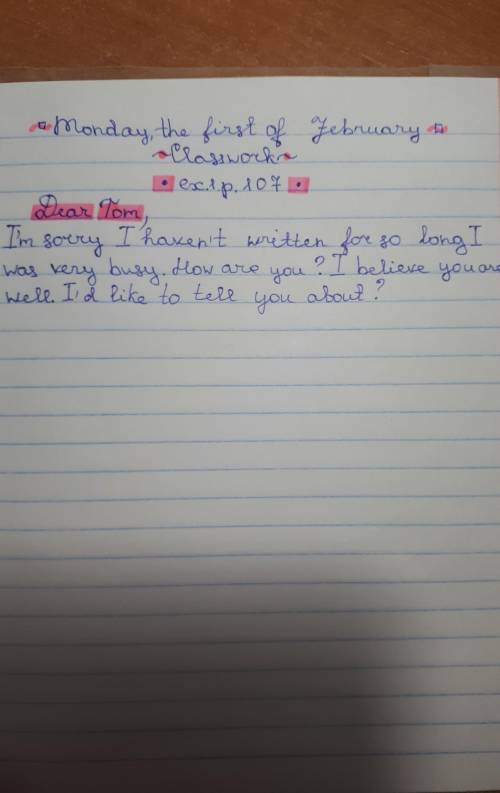 Monday, the first of February
Classwork
ex.1 p. 107
Dear Tom,
I'm sorry I haven't written for so long I
was very busy. How are you? I believe you are
well. I'd like to tell you about?